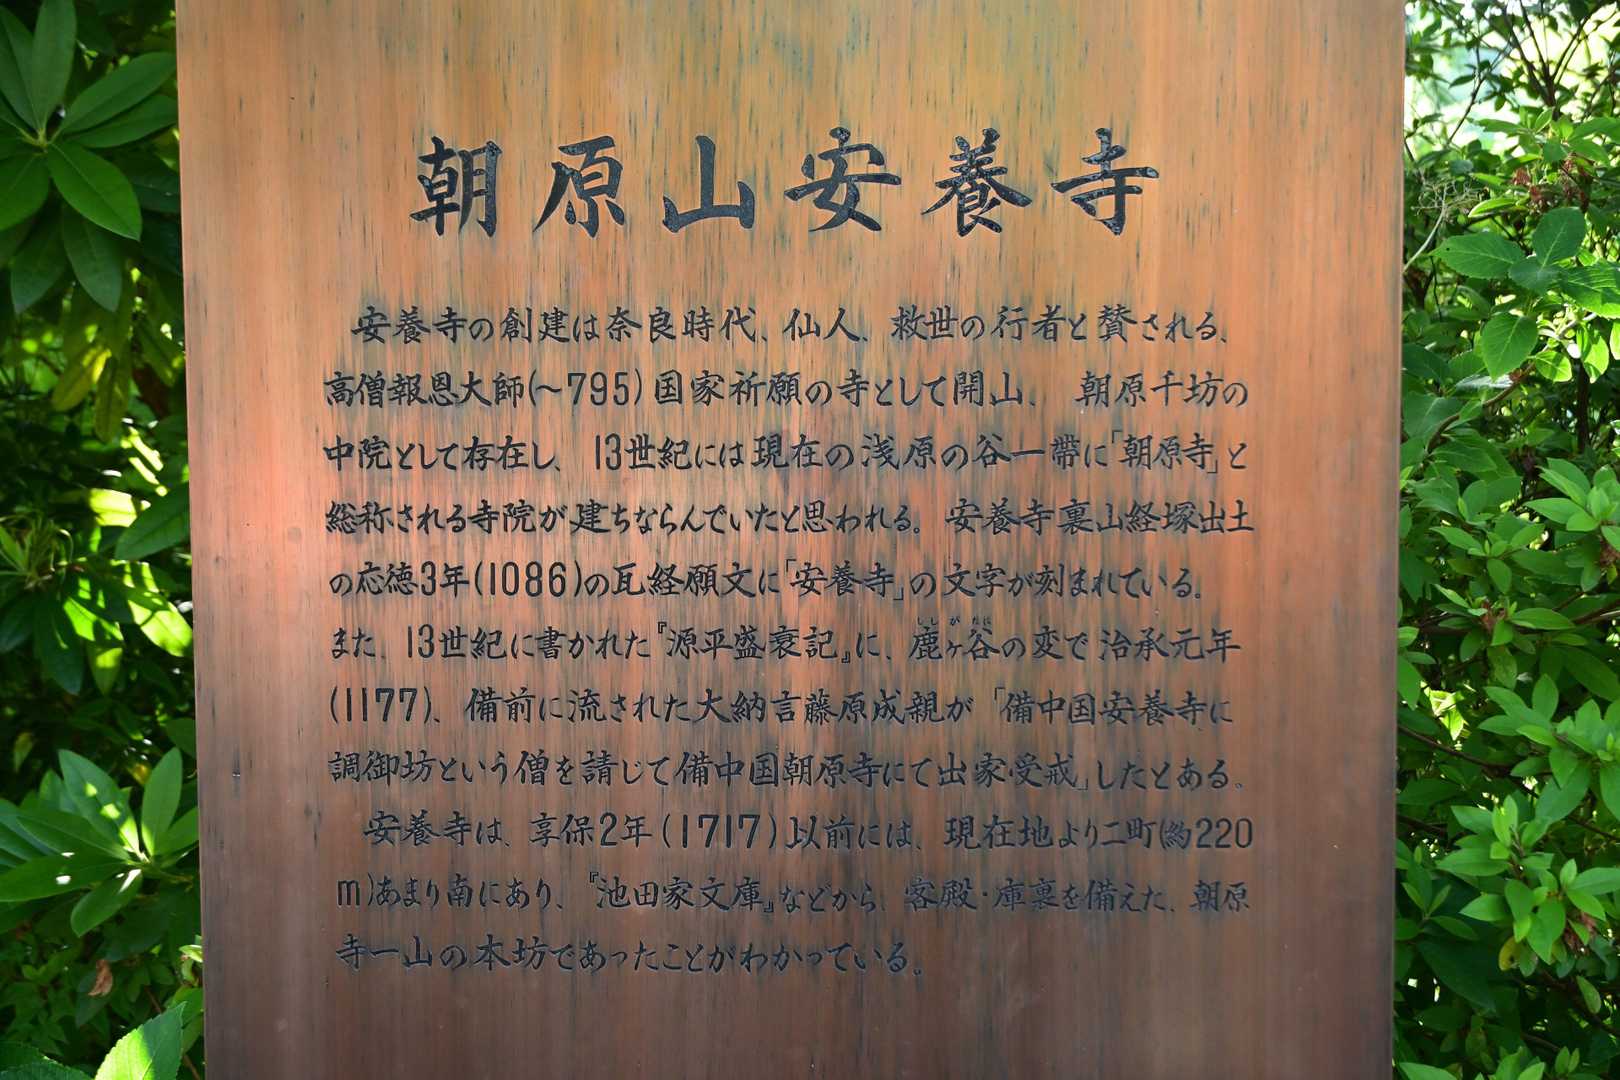 朝原山安養寺
安養寺の創建は奈良時代、仙人、救世の行者と賛される、
高僧報恩大師(~795)国家祈願の寺として開山、朝原千坊の
中院として存在し、13世紀には現在の浅原の谷一帯に「朝原寺」と
総称される寺院が建ちならんでいたと思われる。安養寺裏山経塚出土
の応徳3年(1086)の瓦経願文に「安養寺」の文字が刻まれている。
また、13世紀に書かれた『源平盛衰記』に、鹿ヶ谷の変で治承元年
(1177)、備前に流された大納言藤原成親が「備中国安養寺に
調御坊という僧を請じて備中国朝原寺にて出家・受戒」したとある。
安養寺は、享保2年(1717)以前には、現在地より二町(約220
m)あまり南にあり、『池田家文庫』などから、客殿・庫裏を備えた、朝原
寺一山の本坊であったことがわかっている。